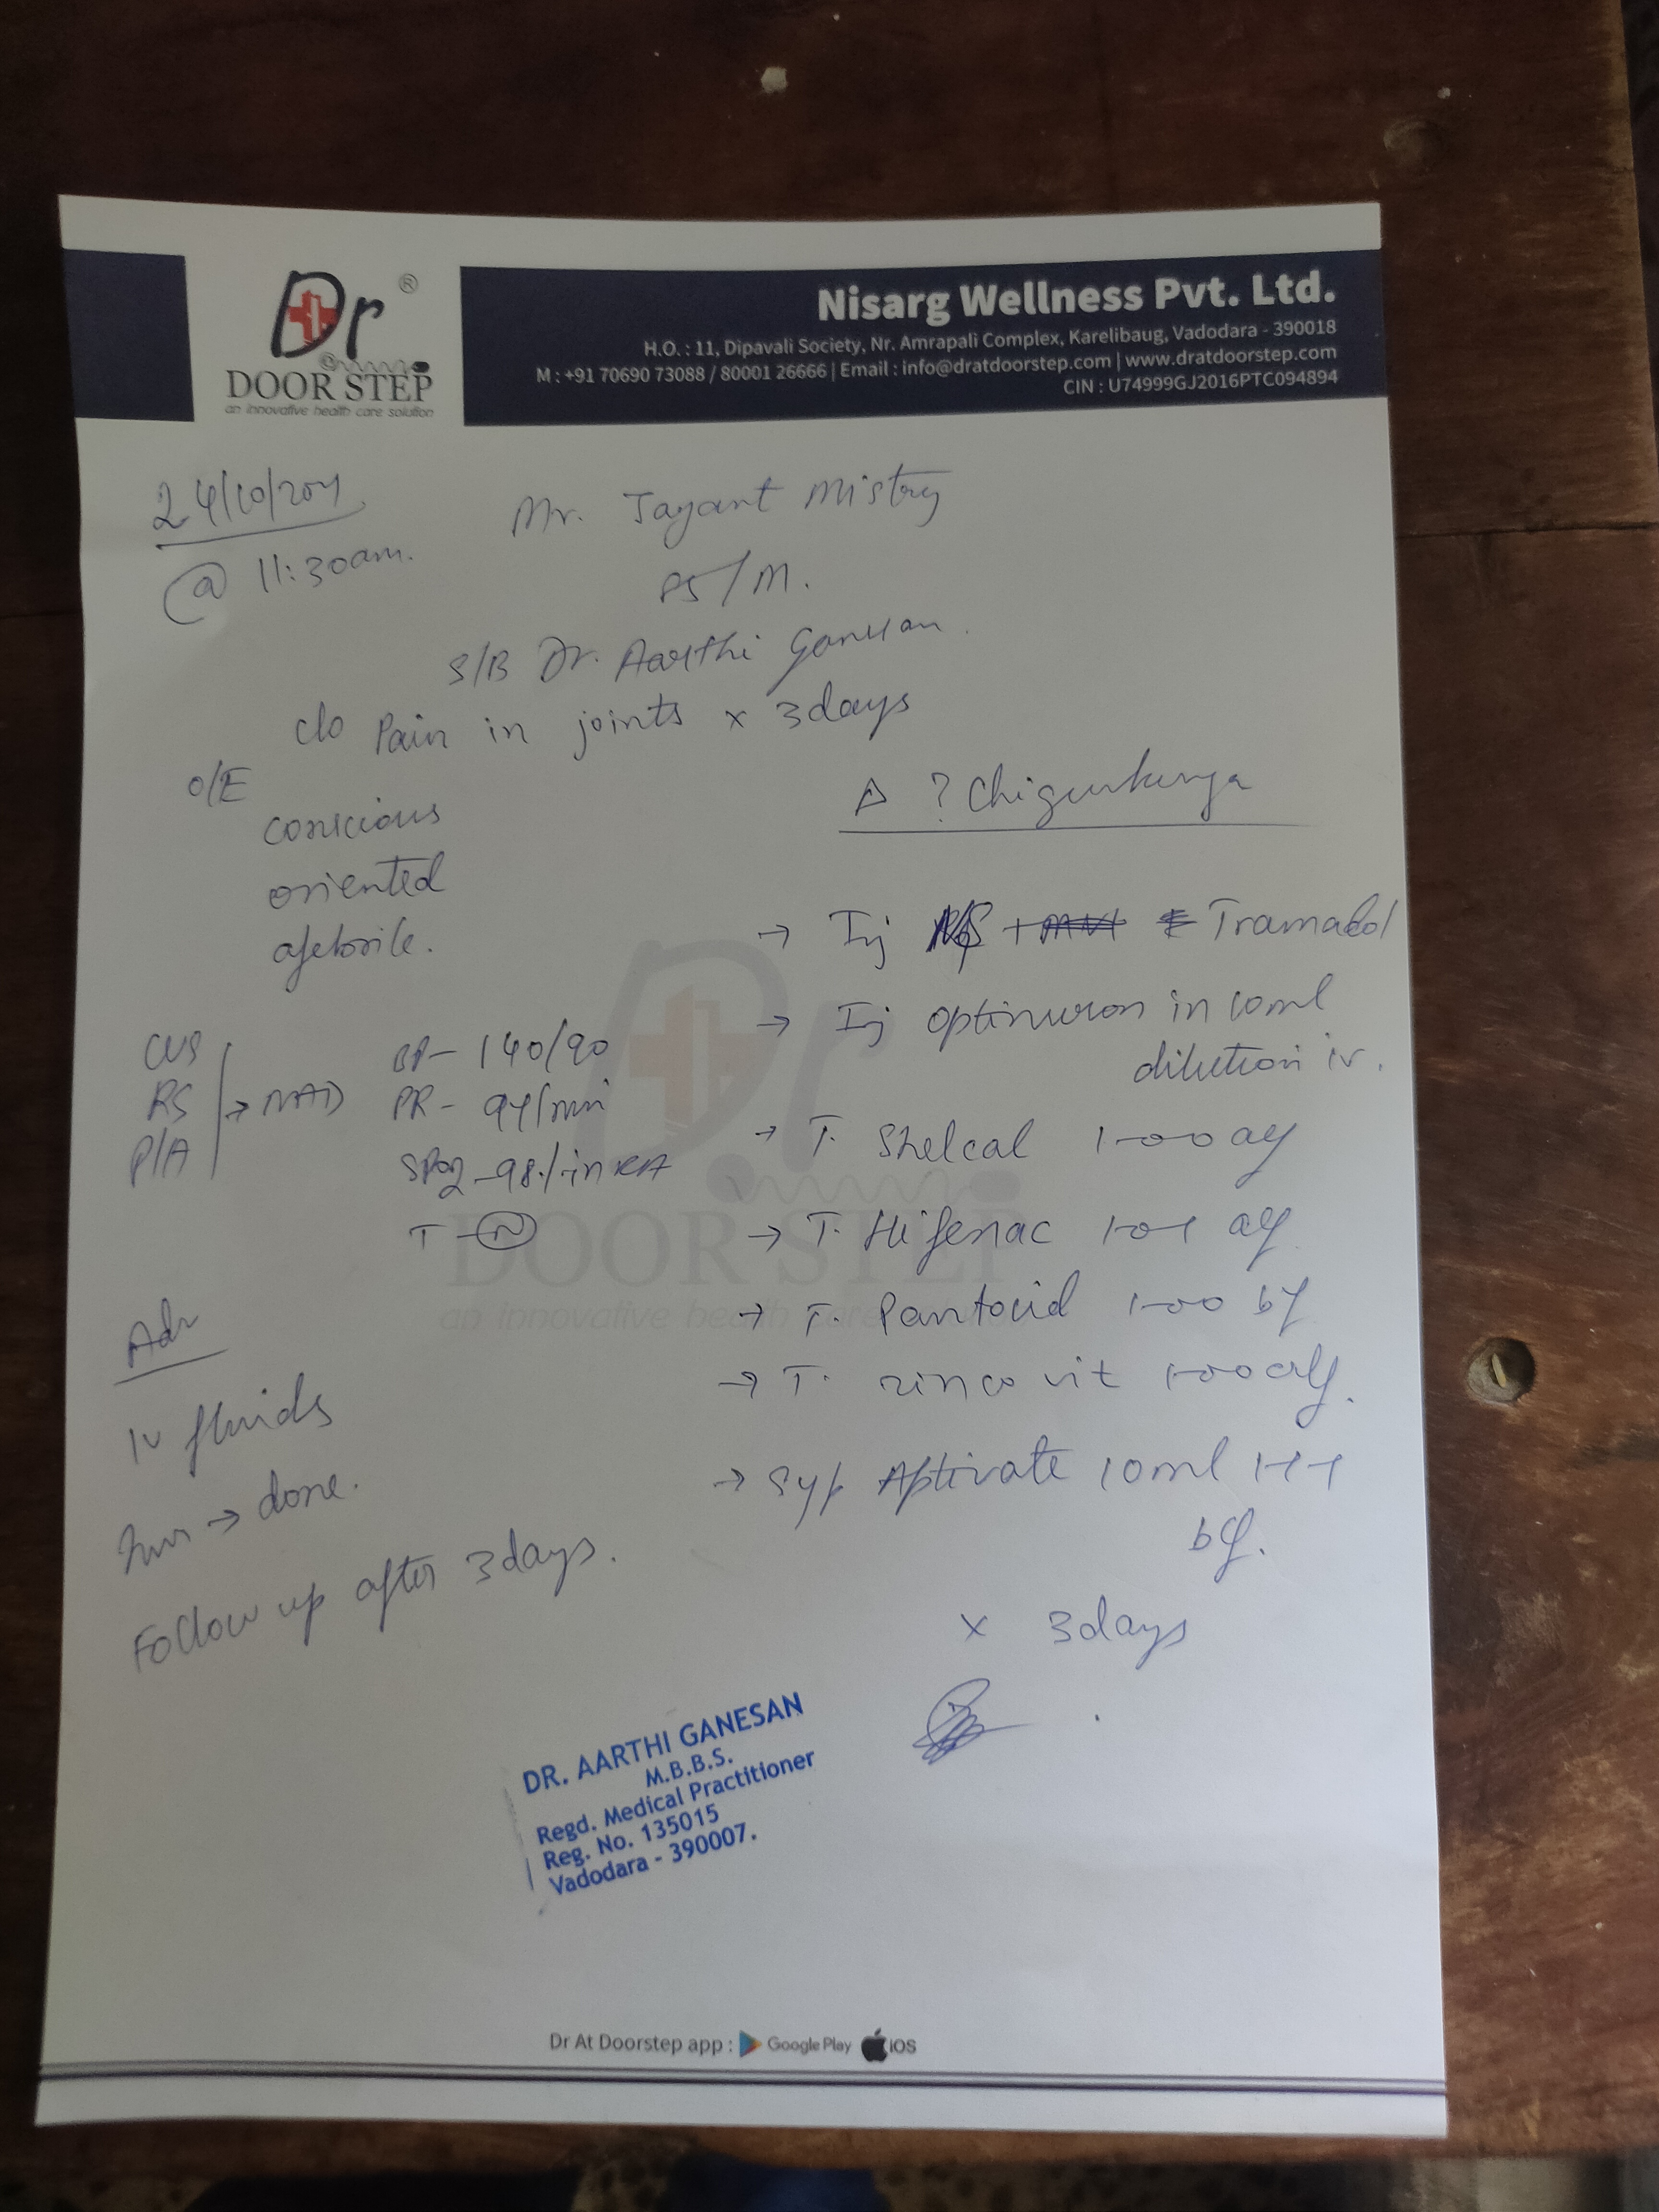 Dr ®
DOOR STEP
an innovative health care solution
Nisarg Wellness Pvt. Ltd.
H.O. : 11, Dipavali Society, Nr. Amrapali Complex, Karelibaug, Vadodara - 390018
M : +91 70690 73088 / 80001 26666 | Email : info@dratdoorstep.com | www.dratdoorstep.com
CIN : U74999GJ2016PTC094894
24/10/
@ 11:30am.
Mr. Jayant Mistry
85/M.
S/B Dr. Aarthi Ganesan.
c/o Pain in joints x 3days
O/E
conscious
oriented
afebrile.
∆ ? Chigunkunya
→ Inj NS + Tramadol
→ Inj Optineuron in 10ml
dilution iv.
CVS
RS → NAD
P/A
BP - 140/90
PR - 94/min
SPO2 - 98% in RA
T - N
→ T. Shelcal 1-0-0 af
→ T. Hifenac 1-0-1 af
→ T. Pantocid 1-0-0 bf
→ T. zincovit 1-0-0 af.
→ Syp Aptivate 10ml 1-1-1
bf.
x 3days
Adv
IV fluids
→ done.
Follow up after 3days.
DR. AARTHI GANESAN
M.B.B.S.
Regd. Medical Practitioner
Reg. No. 135015
Vadodara - 390007.
Dr
DOOR STEP
an innovative health care
Dr At Doorstep app : Google Play iOS